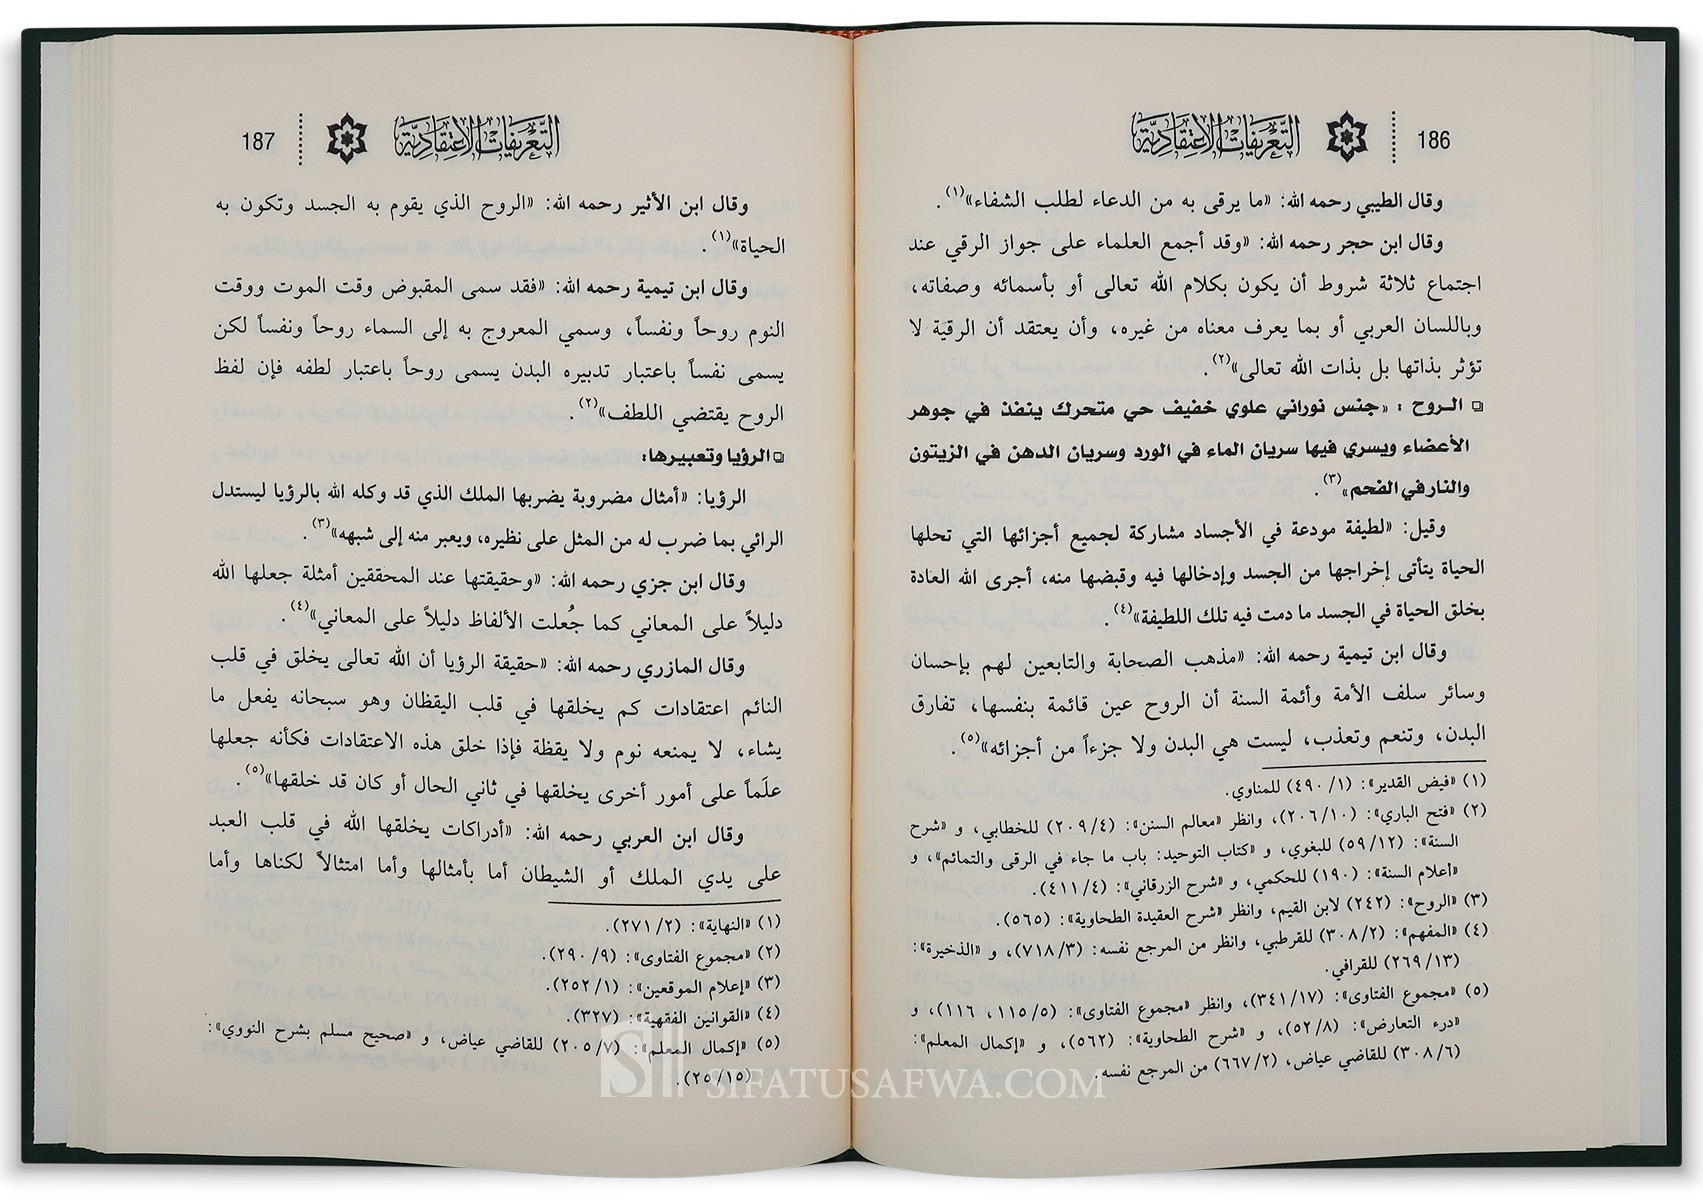 186 التعريفات الاعتقادية
وقال الطيبي رحمه الله: «ما يرقى به من الدعاء لطلب الشفاء»(١).
وقال ابن حجر رحمه الله: «وقد أجمع العلماء على جواز الرقي عند
اجتماع ثلاثة شروط أن يكون بكلام الله تعالى أو بأسمائه وصفاته،
وباللسان العربي أو بما يعرف معناه من غيره، وأن يعتقد أن الرقية لا
تؤثر بذاتها بل بذات الله تعالى»(٢).
❑ الـروح : «جنس نوراني علوي خفيف حي متحرك ينفذ في جوهر
الأعضاء ويسري فيها سريان الماء في الورد وسريان الدهن في الزيتون
والنار في الفحم»(٣).
وقيل: «لطيفة مودعة في الأجساد مشاركة لجميع أجزائها التي تحلها
الحياة يتأتى إخراجها من الجسد وإدخالها فيه وقبضها منه، أجرى الله العادة
بخلق الحياة في الجسد ما دمت فيه تلك اللطيفة»(٤).
وقال ابن تيمية رحمه الله: «مذهب الصحابة والتابعين لهم بإحسان
وسائر سلف الأمة وأئمة السنة أن الروح عين قائمة بنفسها، تفارق
البدن، وتنعم وتعذب، ليست هي البدن ولا جزءاً من أجزائه»(٥).
(١) «فيض القدير»: (١/ ٤٩٠) للمناوي.
(٢) «فتح الباري»: (١٠/ ٢٠٦)، وانظر «معالم السنن»: (٤/ ٢٠٩) للخطابي، و «شرح
السنة»: (١٢/ ٥٩) للبغوي، و «كتاب التوحيد: باب ما جاء في الرقى والتمائم»، و
«أعلام السنة»: (١٩٠) للحكمي، و «شرح الزرقاني»: (٤/ ٤١١).
(٣) «الروح»: (٢٤٢) لابن القيم، وانظر «شرح العقيدة الطحاوية»: (٥٦٥).
(٤) «المفهم»: (٢/ ٣٠٨) للقرطبي، وانظر من المرجع نفسه: (٣/ ٧١٨)، و «الذخيرة»:
(١٣/ ٢٦٩) للقرافي.
(٥) «مجموع الفتاوى»: (١٧/ ٣٤١)، وانظر «مجموع الفتاوى»: (٥/ ١١٥، ١١٦)، و
«درء التعارض»: (٨/ ٥٢)، و «شرح الطحاوية»: (٥٦٢)، و «إكمال المعلم»:
(٦/ ٣٠٨) للقاضي عياض، (٢/ ٦٦٧) من المرجع نفسه.
التعريفات الاعتقادية 187
وقال ابن الأثير رحمه الله: «الروح الذي يقوم به الجسد وتكون به
الحياة»(١).
وقال ابن تيمية رحمه الله: «فقد سمى المقبوض وقت الموت ووقت
النوم روحاً ونفساً، وسمي المعروج به إلى السماء روحاً ونفساً لكن
يسمى نفساً باعتبار تدبيره البدن يسمى روحاً باعتبار لطفه فإن لفظ
الروح يقتضي اللطف»(٢).
❑ الرؤيا وتعبيرها:
الرؤيا: «أمثال مضروبة يضربها الملك الذي قد وكله الله بالرؤيا ليستدل
الرائي بما ضرب له من المثل على نظيره، ويعبر منه إلى شبهه»(٣).
وقال ابن جزي رحمه الله: «وحقيقتها عند المحققين أمثلة جعلها الله
دليلاً على المعاني كما جُعلت الألفاظ دليلاً على المعاني»(٤).
وقال المازري رحمه الله: «حقيقة الرؤيا أن الله تعالى يخلق في قلب
النائم اعتقادات كم يخلقها في قلب اليقظان وهو سبحانه يفعل ما
يشاء، لا يمنعه نوم ولا يقظة فإذا خلق هذه الاعتقادات فكأنه جعلها
علَماً على أمور أخرى يخلقها في ثاني الحال أو كان قد خلقها»(٥).
وقال ابن العربي رحمه الله: «أدراكات يخلقها الله في قلب العبد
على يدي الملك أو الشيطان أما بأمثالها وأما امتثالاً لكناها وأما
(١) «النهاية»: (٢/ ٢٧١).
(٢) «مجموع الفتاوى»: (٩/ ٢٩٠).
(٣) «إعلام الموقعين»: (١/ ٢٥٢).
(٤) «القوانين الفقهية»: (٣٢٧).
(٥) «إكمال المعلم»: (٧/ ٢٠٥) للقاضي عياض، و «صحيح مسلم بشرح النووي»:
(١٥/ ٢٥).
SIFATUSAFWA.COM